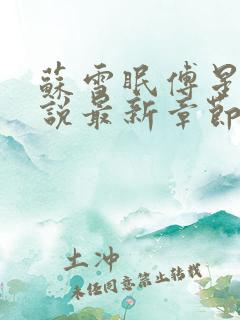 蘇雪眠傅星
說最新章節
土沖
未任同意禁止转载